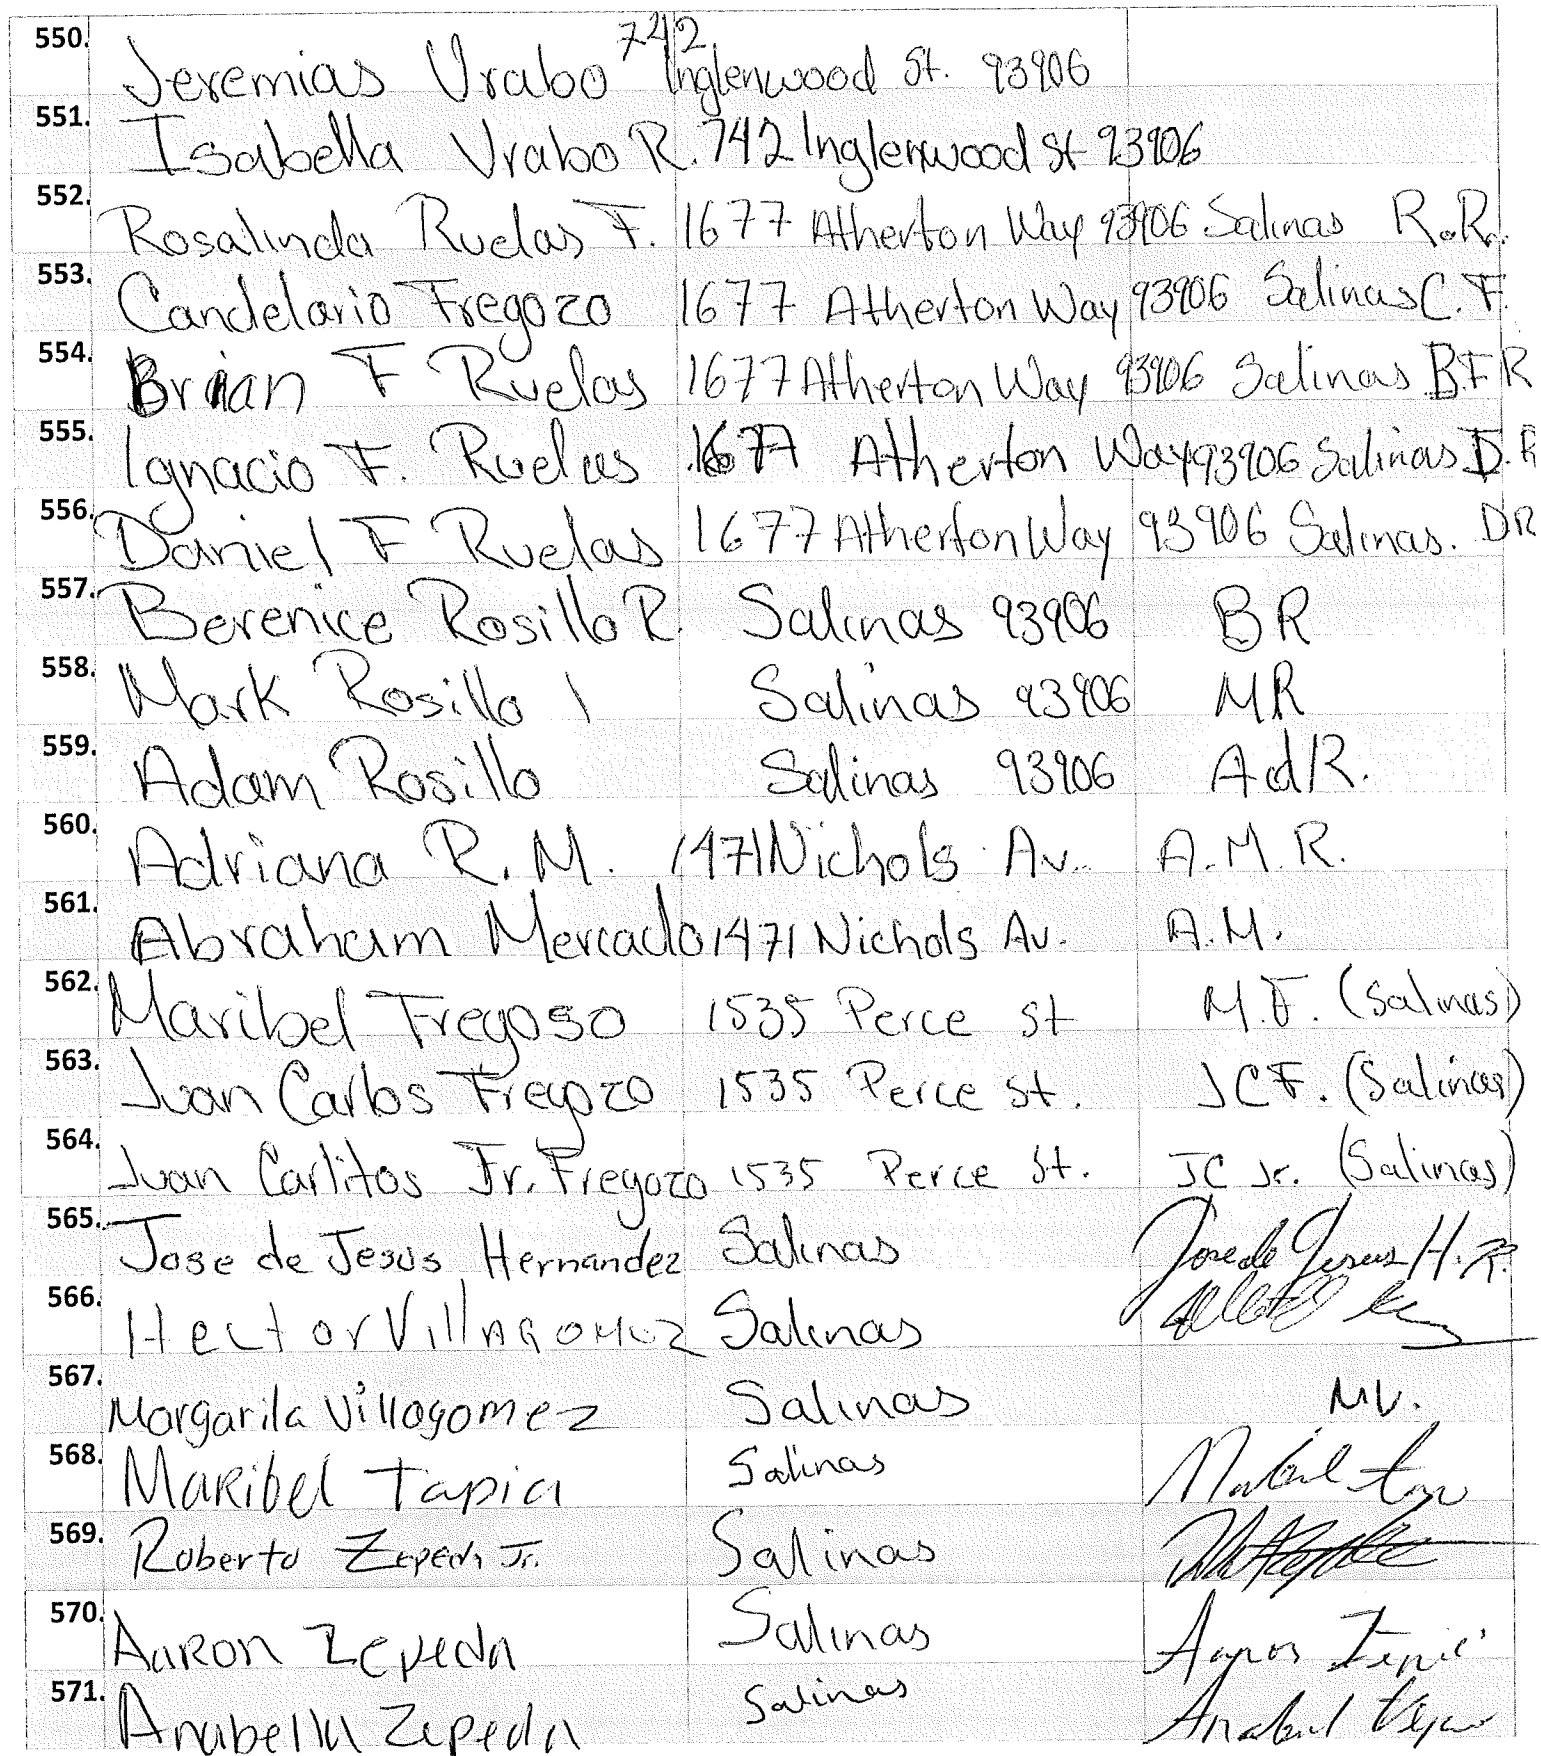 550. Jeremias Vrabo 742 Inglenwood St. 93906
551. Isabella Vrabo R. 742 Inglenwood St 93906
552. Rosalinda Ruelas F. 1677 Atherton Way 93906 Salinas R.R.
553. Candelario Fregozo 1677 Atherton Way 93906 Salinas C.F.
554. Brian F Ruelas 1677 Atherton Way 93906 Salinas B.F R
555. Ignacio F. Ruelas 1677 Atherton Way 93906 Salinas I.R
556. Daniel F Ruelas 1677 Atherton Way 93906 Salinas. DR
557. Berenice Rosillo R. Salinas 93906 BR
558. Mark Rosillo Salinas 93906 MR
559. Adam Rosillo Salinas 93906 AdR.
560. Adriana R. M. 1471 Nichols Av. A.M.R.
561. Abraham Mercado 1471 Nichols Av. A.M.
562. Maribel Fregoso 1535 Perce st M.F. (Salinas)
563. Juan Carlos Fregozo 1535 Perce st. JCF. (Salinas)
564. Juan Carlitos Jr. Fregozo 1535 Perce St. JC Jr. (Salinas)
565. Jose de Jesus Hernandez Salinas Jose de Jesus H. R.
566. Hector Villagomez Salinas
567. Margarita Villagomez Salinas MV.
568. Maribel Tapia Salinas
569. Roberto Zepeda Jr. Salinas
570. Aaron Zepeda Salinas
571. Anabella Zepeda Salinas